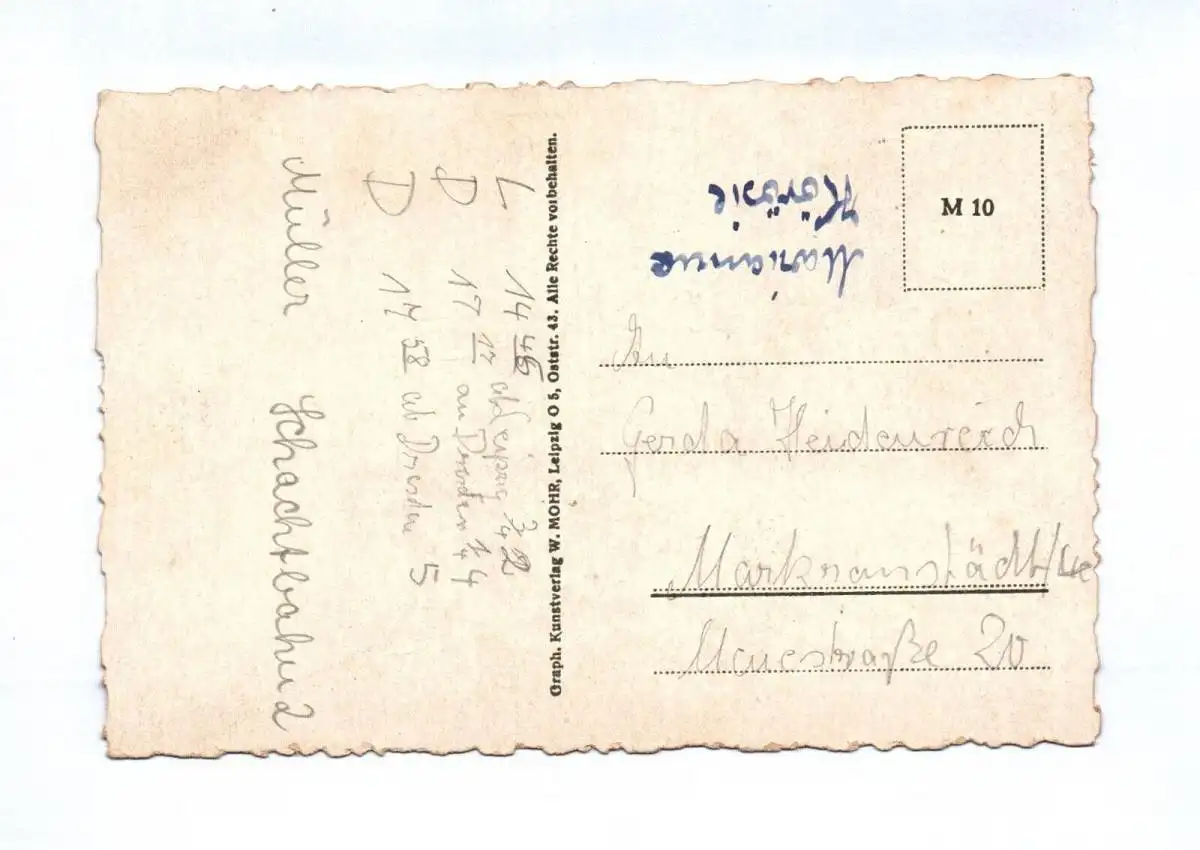 L 14 45 ab Leipzig 3/4 2
D 17 17 an Dresden 1/4 4
D 17 58 ab Dresden 5
Müller
Graph. Kunstverlag W. MOHR, Leipzig O 5, Oststr. 43. Alle Rechte vorbehalten.
M 10
Marianne
An
Gerda Heidenreich
Markranstädt
Neuestraße 20